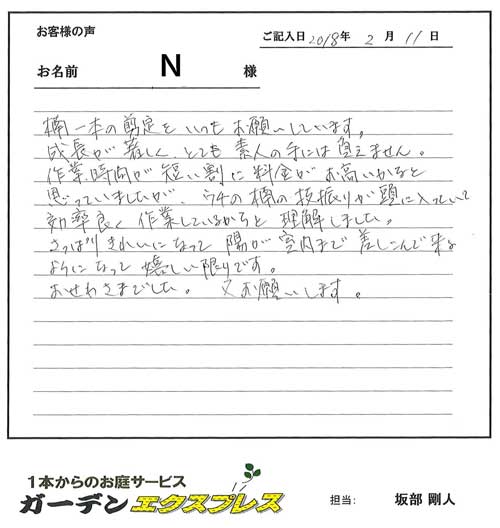 お客様の声
ご記入日 2018年 2 月 11 日
お名前 N 様
楠一本の剪定をいつもお願いしています。
成長が著しく、とても素人の手には負えません。
作業時間が短い割に料金がお高いかなと
思っていましたが、ウチの楠の枝振りが頭に入っていて
効率良く作業しているからと理解しました。
さっぱりきれいになって陽が室内まで差しこんで来る
ようになって嬉しい限りです。
おせわさまでした。 又お願いします。
1本からのお庭サービス
ガーデンエクスプレス
担当: 坂部 剛人